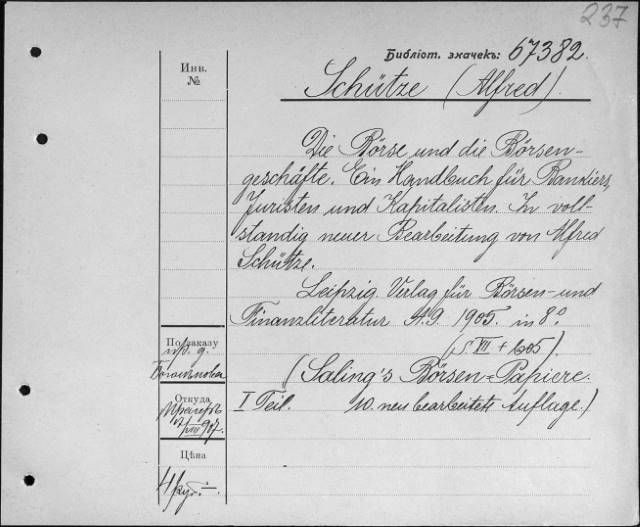 237
Библіот. значекъ: 67382.
Инв.
№
Schütze (Alfred).
Die Börse und die Börsen-
geschäfte. Ein Handbuch für Bankiers,
Juristen und Kapitalisten. In voll-
ständig neuer Bearbeitung von Alfred
Schütze.
Leipzig. Verlag für Börsen- und
Finanzliteratur A.G. 1905. in 8º
(S. VII + 605)
(Saling's Börsen-Papiere.
I Teil. 10. neu bearbeitete Auflage.)
По заказу
пр. д.
Откуда
VIII 907.
Цѣна
4 руб. —